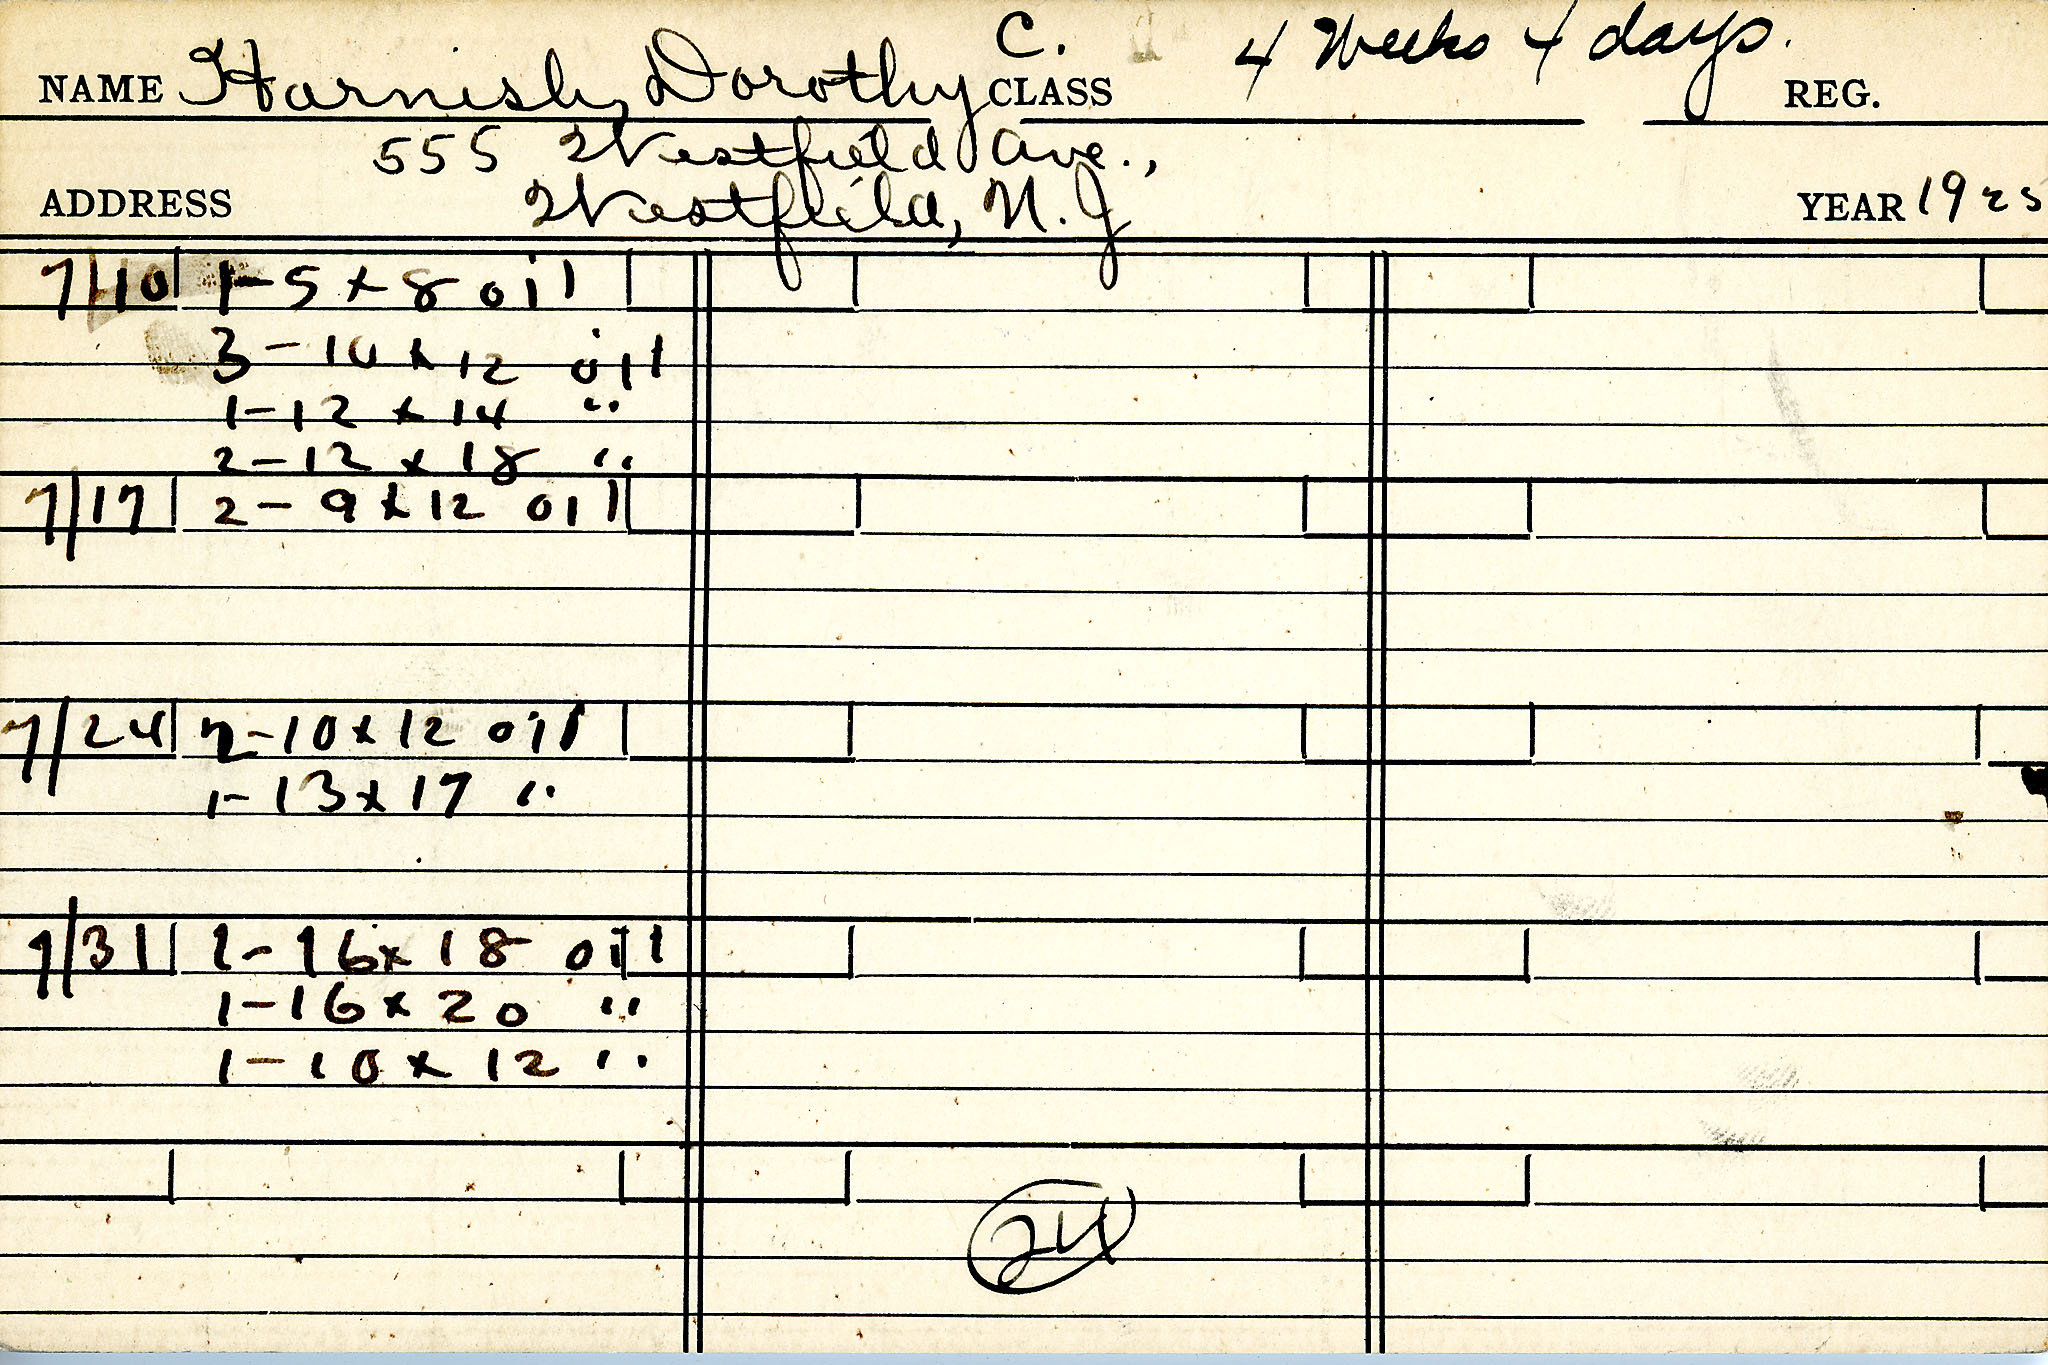 NAME Harnish, Dorothy C. CLASS 4 Weeks 4 days. REG.
555 Westfield Ave.,
ADDRESS Westfield, N.J YEAR 1925
7/10 1-5 x 8 oil
3-10 x 12 oil
1-12 x 14 "
2-12 x 18 "
7/17 2-9 x 12 oil
7/24 2-10 x 12 oil
1-13 x 17 "
7/31 1-16 x 18 oil
1-16 x 20 "
1-10 x 12 "
24